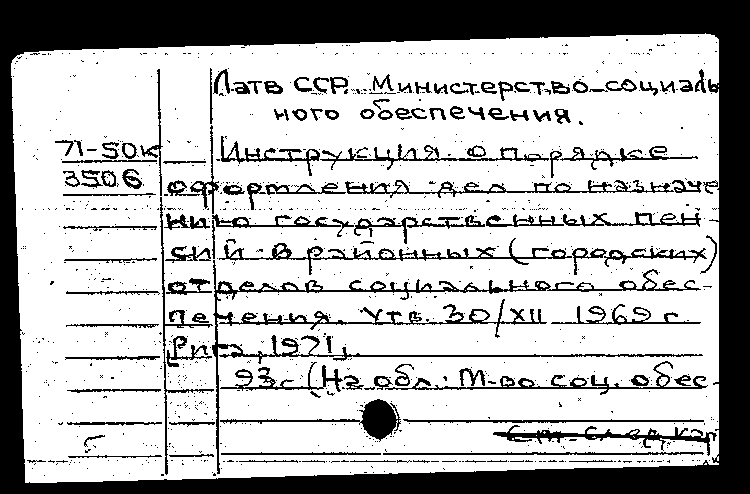 Латв ССР. Министерство социаль
ного обеспечения.
71-50к
3506
Инструкция о порядке
оформления дел по назначе
нию государственных пен-
сий в районных (городских)
отделов социального обес-
печения. Утв. 30/XII 1969 г.
[Рига, 1971].
93с (На обл.: М-во соц. обес-
См. след. кар